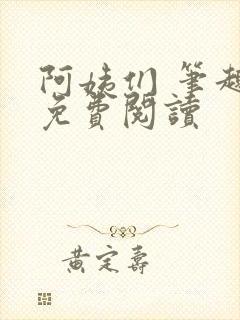 阿姨们 笔趣
免費閱讀
黃定壽